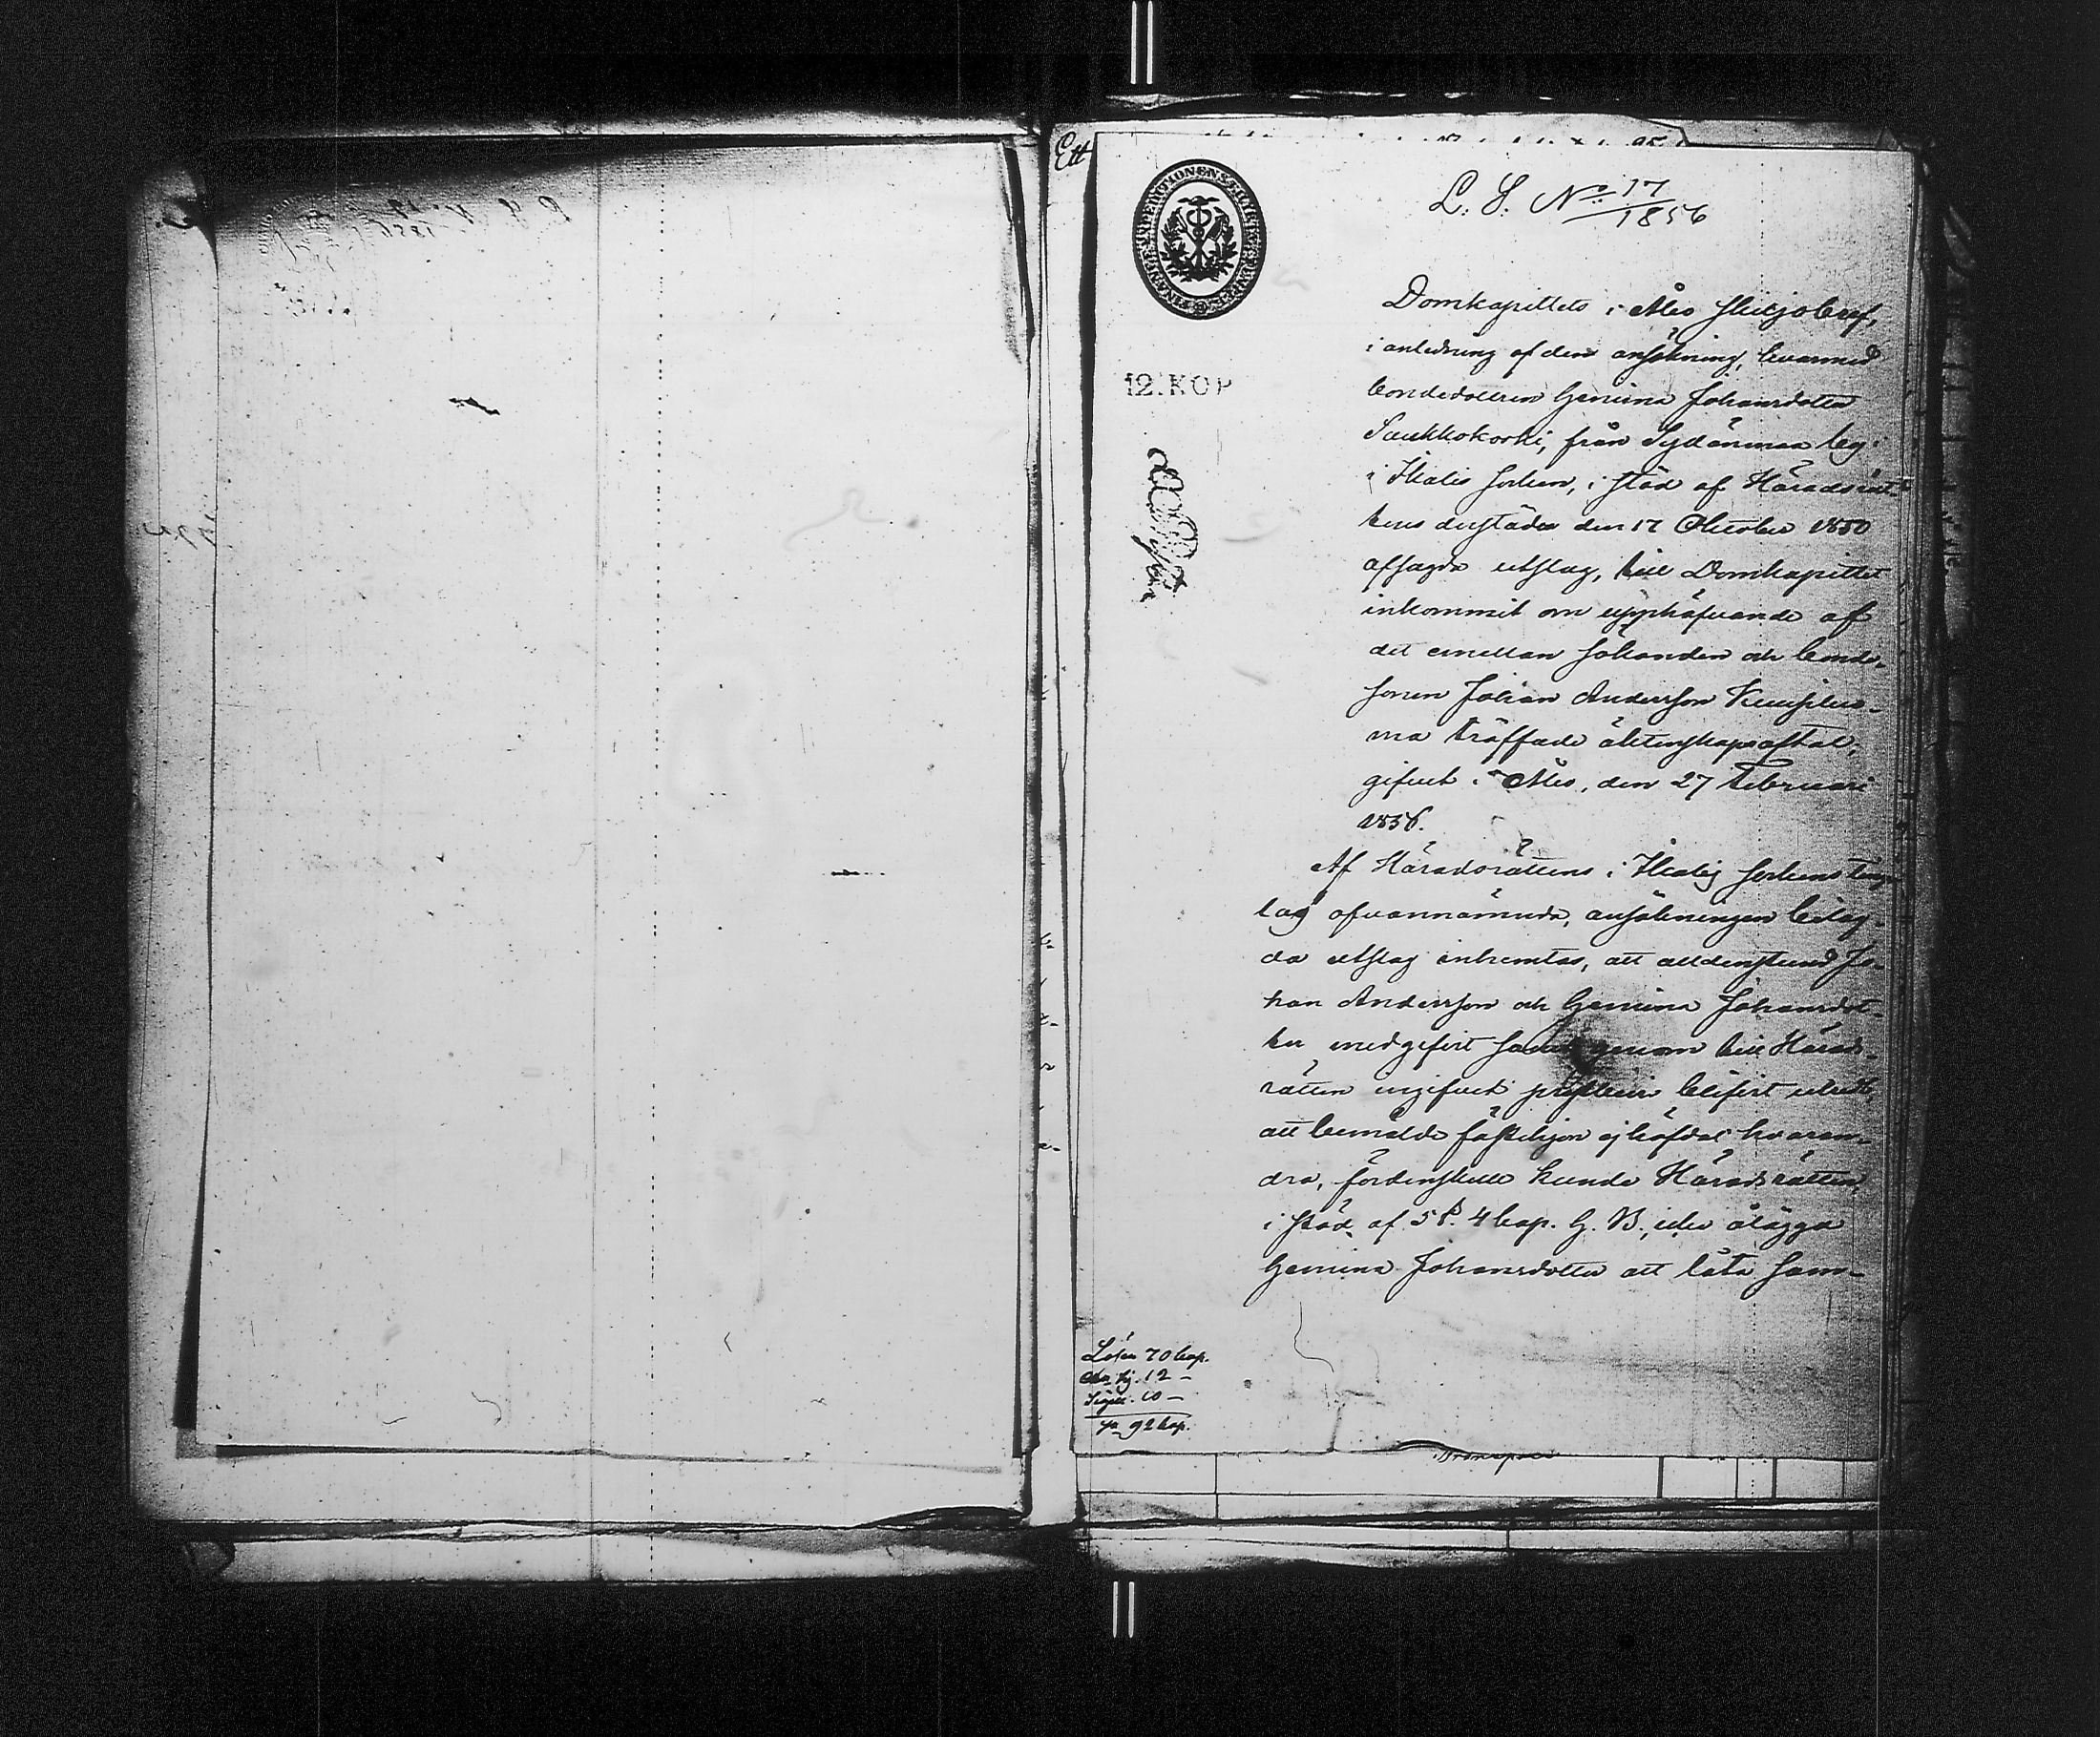 Ett
L. S. No 17/1856
12. KOP
Domkapitlets i Åbo skiljobref,
i anledning af den ansökning, hvarmed
bondedottren Gemina Johansdotter
Saukkokoski, från Sydänmaa by
i Ikalis socken, i stöd af Häradsrät-
tens derstädes den 17 October 1850
afsagda utslag, till Domkapitlet
inkommit om upphäfvande af
det emellan sökanden och bonde-
sonen Johan Andersson
ma träffade äktenskapsaftal,
gifvet i Åbo, den 27 Februari
1856.
Af Häradsrättens i Ikalis sockens tings-
lag ofvannämnda, ansökningen bilag-
da utslag inhemtas, att alldenstund Jo-
han Andersson och Gemina Johansdot-
ter medgifvit samt genom till Härads-
rätten ingifvet blifvit utredt,
att bemälde fästehjon ej häfdat hvaran-
dra, fördenskull kunde Häradsrätten,
i stöd af 5 §. 4 kap. G. B., icke ålägga
Gemina Johansdotter att låta sam-
Lösen 70 kop.
12 -
Sigill. 10 -
92 kop.